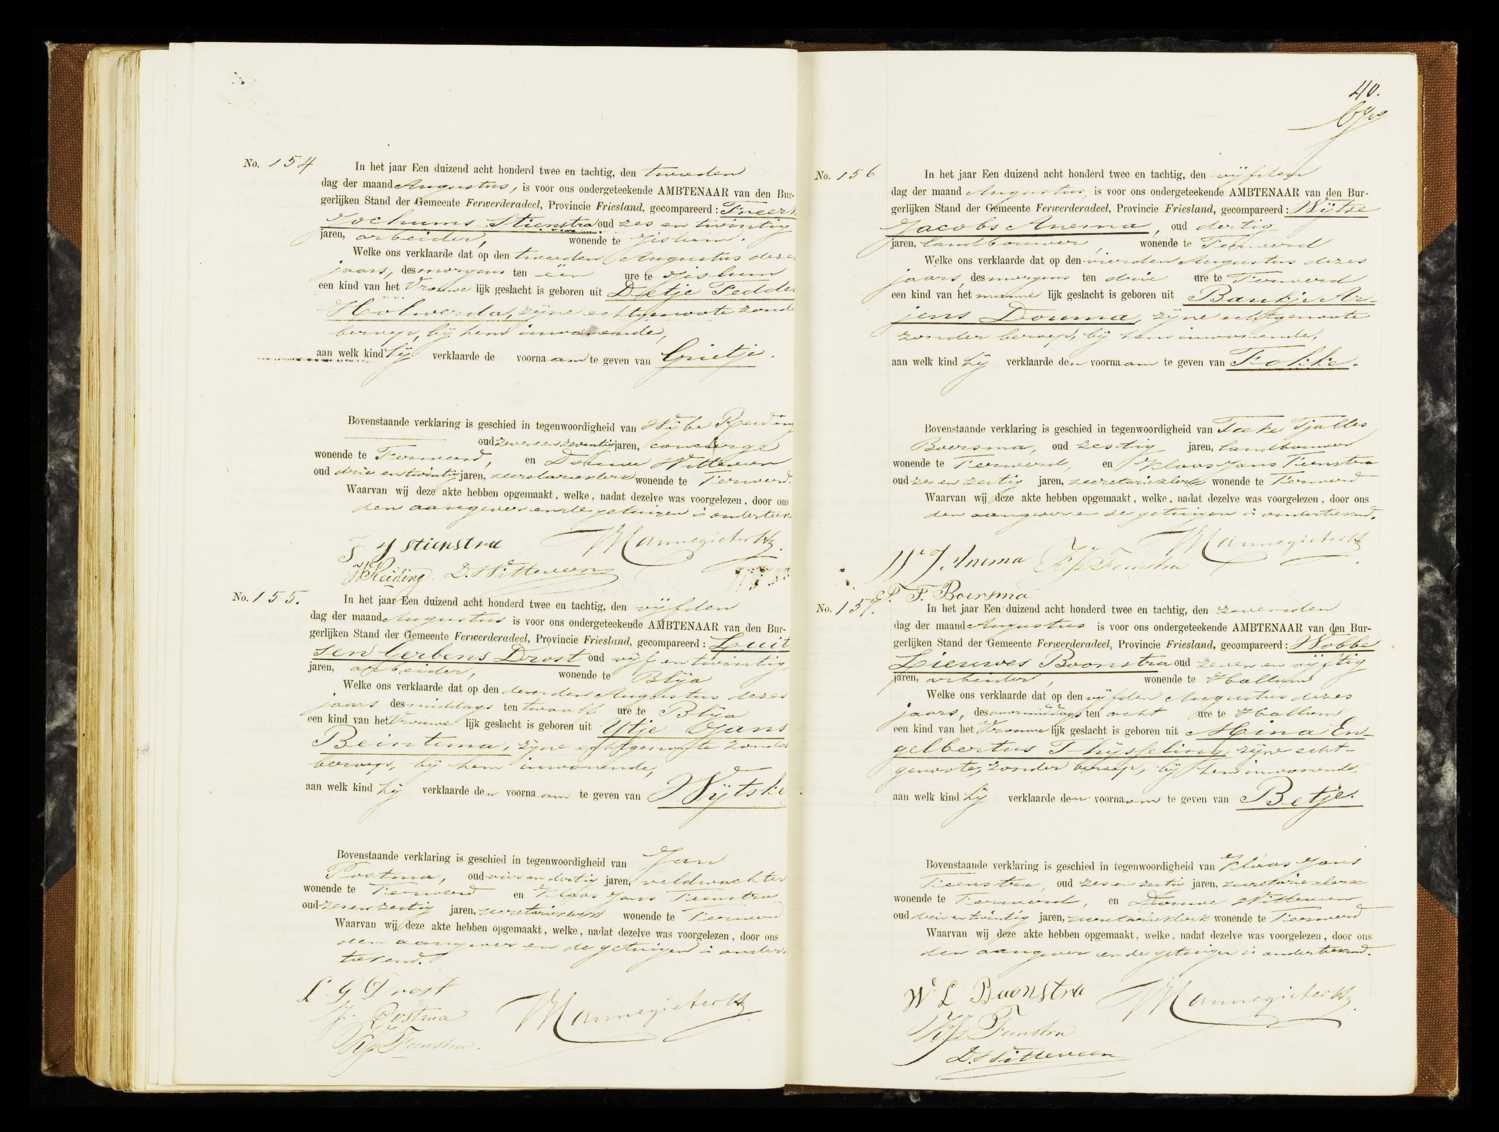 No. 154 In het jaar Een duizend acht honderd twee en tachtig, den tweeden
dag der maand Augustus, is voor ons ondergeteekende AMBTENAAR van den Bur-
gerlijken Stand der Gemeente Ferwerderadeel, Provincie Friesland, gecompareerd:
Jochums Stienstra oud zes en twintig
jaren, arbeider, wonende te Jislum.
Welke ons verklaarde dat op den tweeden Augustus dezes
jaars, des morgens ten één ure te Jislum
een kind van het Vrouwelijk geslacht is geboren uit Dietje Fedde
Holwerda, zijne echtgenoote zonder
beroep, bij hem inwonende,
aan welk kind hij verklaarde de voornaam te geven van Grietje.
Bovenstaande verklaring is geschied in tegenwoordigheid van Wijbe Reiding
oud zeven en zeventig jaren, concierge
wonende te Ferwerd, en Douwe Witteveen
oud drie en twintig jaren, secretarieklerk wonende te Ferwerd.
Waarvan wij deze akte hebben opgemaakt, welke, nadat dezelve was voorgelezen, door ons
den aangever en de getuigen is onderteek
F J Stienstra Mannegieter
W Reiding D. Witteveen
No. 155. In het jaar Een duizend acht honderd twee en tachtig, den vijfden
dag der maand Augustus is voor ons ondergeteekende AMBTENAAR van den Bur-
gerlijken Stand der Gemeente Ferwerderadeel, Provincie Friesland, gecompareerd: Luit
sen Gerbens Drost oud vijf en twintig
jaren, arbeider, wonende te Blija
Welke ons verklaarde dat op den derden Augustus dezes
jaars des middags ten twaalf ure te Blija
een kind van het Vrouwelijk geslacht is geboren uit Ytje Jans
Beintema, zijne echtgenoote zonder
beroep, bij hem inwonende,
aan welk kind hij verklaarde den voornaam te geven van Wijtske
Bovenstaande verklaring is geschied in tegenwoordigheid van Jan
Postma, oud vier en dertig jaren, veldwachter
wonende te Ferwerd en Klaas Jans Feenstra
oud zes en zestig jaren, secretarieklerk wonende te Ferwerd
Waarvan wij deze akte hebben opgemaakt, welke, nadat dezelve was voorgelezen, door ons
den aangever en de getuigen is onder-
tekend.
L G Drost
J. Postma Mannegieter
Kjs Feenstra.
40.
No. 156 In het jaar Een duizend acht honderd twee en tachtig, den vijfden
dag der maand Augustus is voor ons ondergeteekende AMBTENAAR van den Bur-
gerlijken Stand der Gemeente Ferwerderadeel, Provincie Friesland, gecompareerd: Wijtze
Jacobs Anema, oud dertig
jaren, landbouwer, wonende te Ferwerd
Welke ons verklaarde dat op den vierden Augustus dezes
jaars, des morgens ten drie ure te Ferwerd
een kind van het mannelijk geslacht is geboren uit Baukje Ar-
jens Douma, zijne echtgenoote
zonder beroep, bij hem inwonende,
aan welk kind hij verklaarde den voornaam te geven van Fokke.
Bovenstaande verklaring is geschied in tegenwoordigheid van Foeke Tjalles
Boersma, oud zestig jaren, landbouwer
wonende te Ferwerd, en Klaas Jans Feenstra
oud zes en zestig jaren, secretarieklerk wonende te Ferwerd
Waarvan wij deze akte hebben opgemaakt, welke, nadat dezelve was voorgelezen, door ons
den aangever en de getuigen is onderteekend.
W. J. Anema Kjs Feenstra Mannegieter
F. Boersma
No. 157. In het jaar Een duizend acht honderd twee en tachtig, den zevenden
dag der maand Augustus is voor ons ondergeteekende AMBTENAAR van den Bur-
gerlijken Stand der Gemeente Ferwerderadeel, Provincie Friesland, gecompareerd: Wobbe
Lieuwes Boonstra oud zeven en vijftig
jaren, arbeider, wonende te Hallum
Welke ons verklaarde dat op den vijfden Augustus dezes
jaars, des voormiddags ten acht ure te Hallum
een kind van het Vrouwelijk geslacht is geboren uit Mina En-
gelbertus Thijsseling, zijne echt-
genoote, zonder beroep, bij hem inwonende
aan welk kind hij verklaarde den voornaam te geven van Betje.
Bovenstaande verklaring is geschied in tegenwoordigheid van Klaas Jans
Feenstra, oud zes en zestig jaren, secretarieklerk
wonende te Ferwerd, en Douwe Witteveen
oud drie en twintig jaren, secretarieklerk wonende te Ferwerd
Waarvan wij deze akte hebben opgemaakt, welke, nadat dezelve was voorgelezen, door ons
den aangever en de getuigen is onderteekend.
W L Boonstra Mannegieter
Kjs Feenstra
D. Witteveen